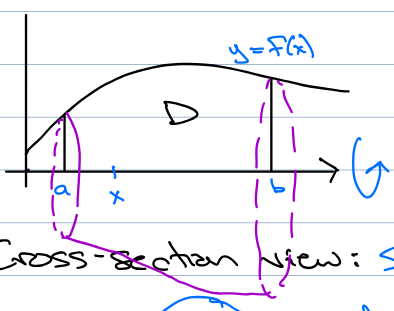 y=f(x)
D
a
x
b
Cross-section view: